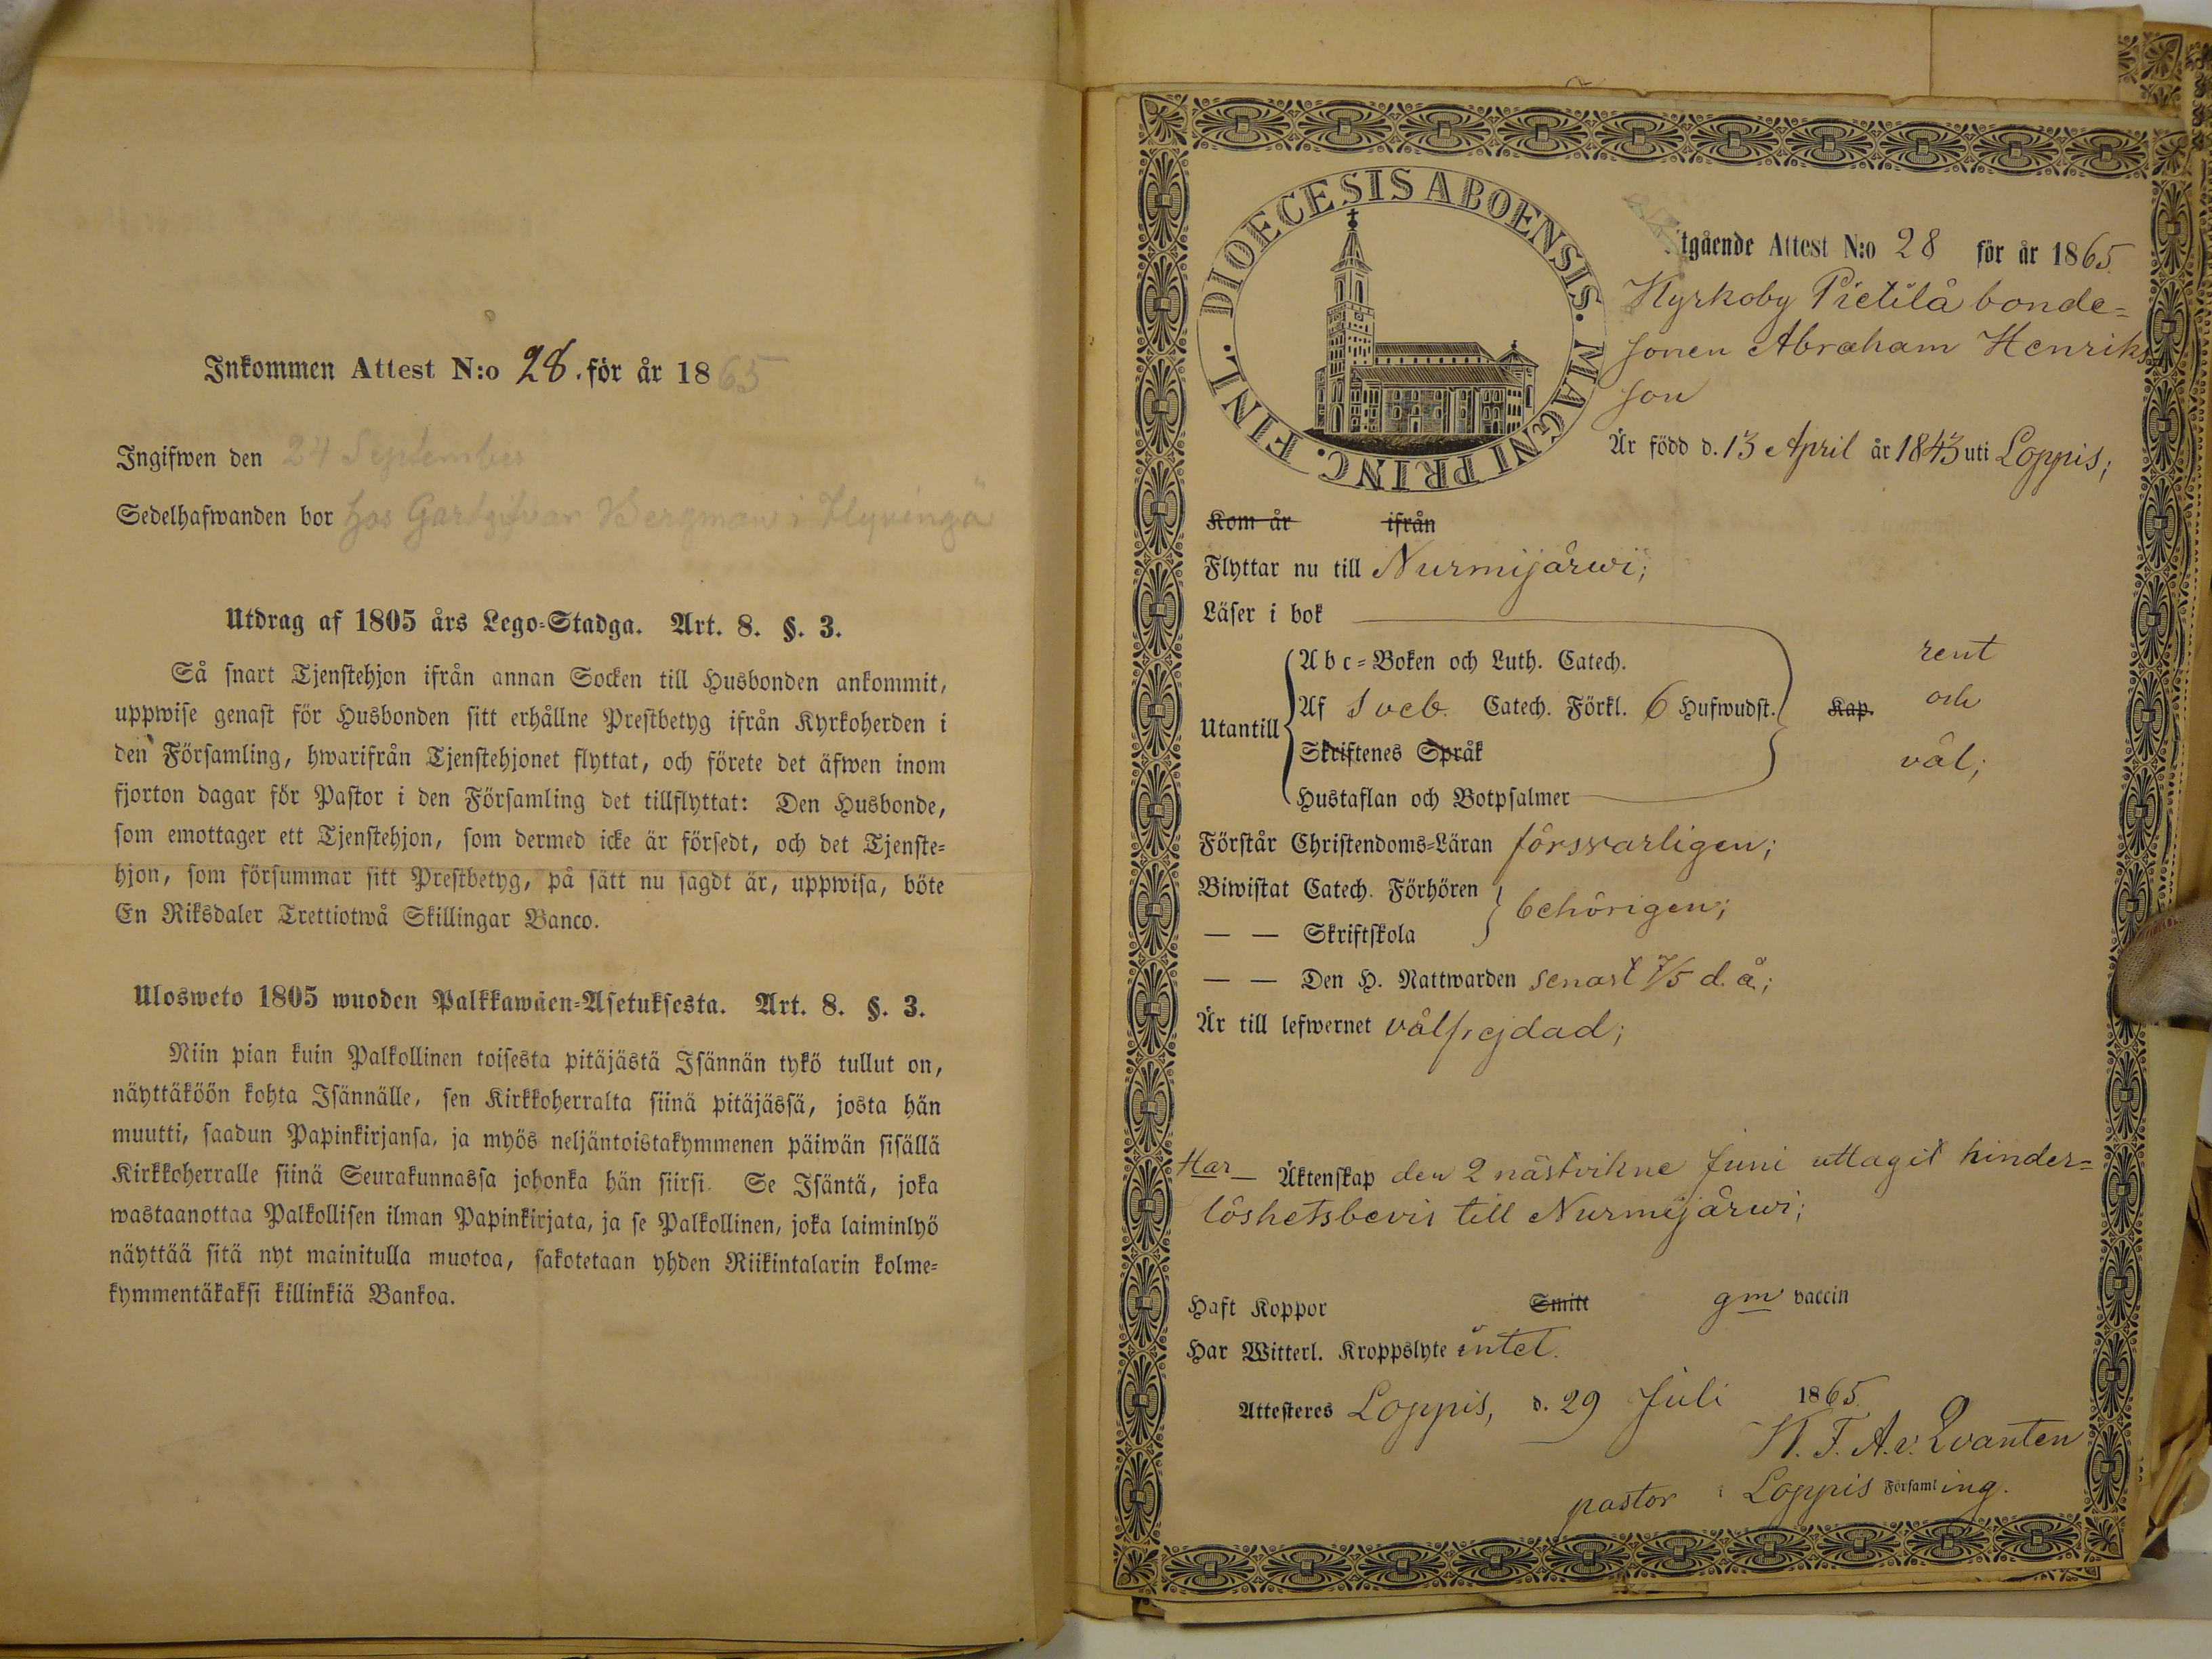 Inkommen Attest N:o 28. för år 1865
Ingifwen den 24 September
Sedelhafwanden bor hos Gästgifvar Bergman i Hyvingä
Utdrag af 1805 års Lego-Stadga. Art. 8. §. 3.
Så snart Tjenstehjon ifrån annan Socken till Husbonden ankommit,
uppwise genast för Husbonden sitt erhållne Prestbetyg ifrån Kyrkoherden i
den Församling, hwarifrån Tjenstehjonet flyttat, och förete det äfwen inom
fjorton dagar för Pastor i den Församling det tillflyttat: Den Husbonde,
som emottager ett Tjenstehjon, som dermed icke är försedt, och det Tjenste=
hjon, som försummar sitt Prestbetyg, på sätt nu sagdt är, uppwisa, böte
En Riksdaler Trettiotwå Skillingar Banco.
Ulosweto 1805 wuoden Palkkawäen-Asetuksesta. Art. 8. §. 3.
Niin pian kuin Palkollinen toisesta pitäjästä Isännän tykö tullut on,
näyttäköön kohta Isännälle, sen Kirkkoherralta siinä pitäjässä, josta hän
muutti, saadun Papinkirjansa, ja myös neljäntoistakymmenen päiwän sisällä
Kirkkoherralle siinä Seurakunnassa johonka hän siirsi. Se Isäntä, joka
wastaanottaa Palkollisen ilman Papinkirjata, ja se Palkollinen, joka laiminlyö
näyttää sitä nyt mainitulla muotoa, sakotetaan yhden Riikintalarin kolme=
kymmentäkaksi killinkiä Bankoa.
DIOECESIS ABOENSIS. MAGNI PRINC. FINL.
tgående Attest N:o 28 för år 1865.
Kyrkoby Pietilä bonde=
sonen Abraham Henriks
son
Är född d. 13 April år 1843 uti Loppis;
Kom år ifrån
Flyttar nu till Nurmijärwi;
Läser i bok
Utantill
Abc=Boken och Luth. Catech.
Af Sveb. Catech. Förkl. 6 Hufwudst.
Skriftenes Språk
Hustaflan och Botpsalmer
Kap.
rent
och
väl;
Förstår Christendoms=Läran försvarligen;
Biwistat Catech. Förhören
— — Skriftskola
behörigen;
— — Den H. Nattwarden senast 7/5 d. å.;
Är till lefwernet välfrejdad;
Har — Äktenskap den 2 nästvikne Juni uttagit hinder=
löshetsbevis till Nurmijärwi;
Haft Koppor Smitt gm vaccin
Har Witterl. Kroppslyte intet.
Attesteres Loppis, d. 29 Juli 1865.
K. F. A. v. Qvanten
pastor i Loppis Församling.